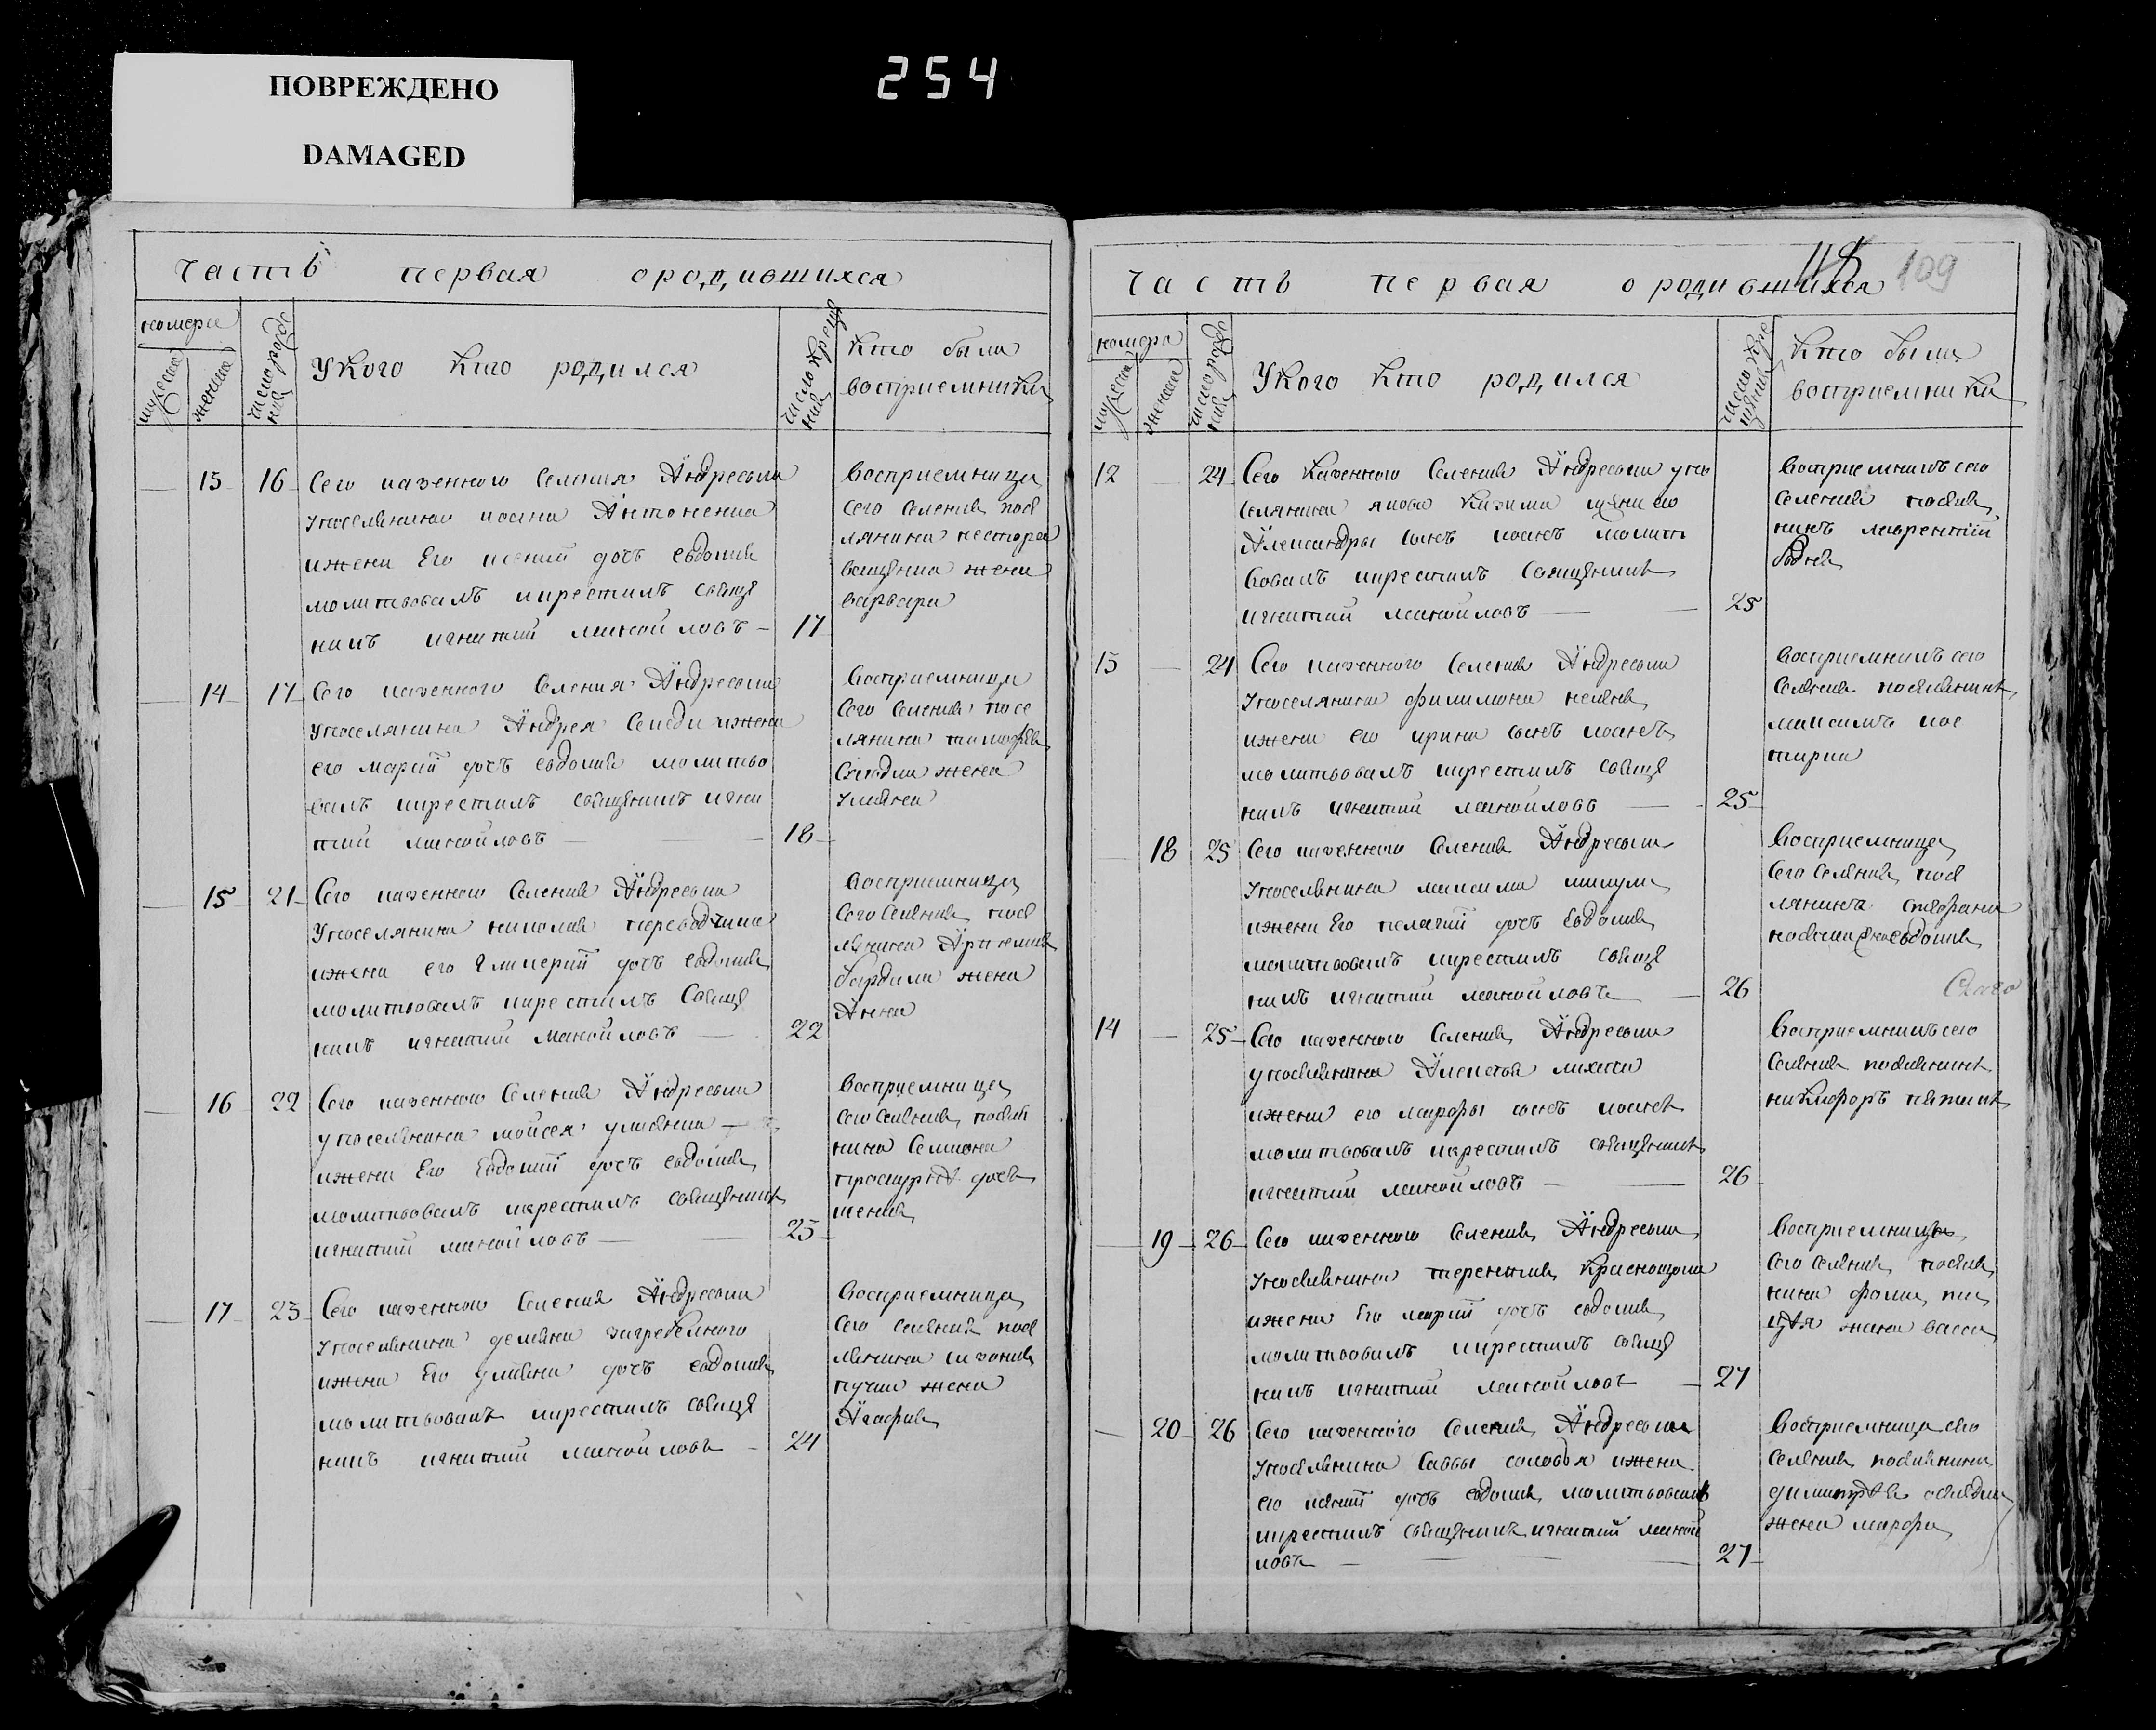 ПОВРЕЖДЕНО
DAMAGED
254
часть первая ородившихся
номера
мужеска
женска
число рожде
ния
Укого Кто родился
число креще
ния
Кто были
восприемники
13 16 Сего казенного Селения Андреевки
упоселянина иоанна Антоненка
ижены Его дочь евдокия
молитвовалъ икрестилъ свяще
никъ игнатий манойловъ 17
восприемница
сего Селения посе
лянина нестора
жена
варвара
14 17 Сего казенного Селения Андреевки
упоселянина Андрея ижены
его марии дочь евдокия молитво
валъ икрестилъ священикъ игна
тий манойловъ 18
восприемница
Сего Селения посе
лянина тимофея
жена
улияна
15 21 Сего казенного Селения Андреевки
Упоселянина николая
ижены его Гликерии дочь евдокия
молитвовалъ икрестилъ Свяще
никъ игнатий манойловъ 22
восприемница
Сего Селения посе
лянина Артемия
жена
Анна
16 22 Сего казенного Селения Андреевки
упоселянина мойсея
ижены Его Евдокии дочь евдокия
молитвовалъ икрестилъ священикъ
игнатий манойловъ 23
восприемница
сего Селения поселя
нина Семиона
дочь
17 23 Сего казенного Селения Андреевки
упоселянина демяна загребелного
ижены Его улияны дочь евдокия
молитвовалъ икрестилъ свяще
никъ игнатий манойловъ 24
восприемница
Сего Селения посе
лянина
жена
Агафия
часть первая ородившихся 109
номера
мужеска
женска
число рожде
ния
Укого Кто родился
число кре
щения
Кто были
восприемники
12 24 Сего Казенного Селения Андреевки упо
селянина якова жени его
Александры сынъ иоанъ молит
вовалъ икрестилъ Священикъ
игнатий манойловъ 25
восприемникъ сего
Селения поселя
нинъ лаврентий
13 24 Сего казенного Селения Андреевки
упоселянина филимона
ижены его ирины сынъ иоанъ
молитвовалъ икрестилъ свяще
никъ игнатий манойловъ 25
восприемникъ сего
Селения поселянинъ
максимъ
18 25 Сего казенного Селения Андреевки
упоселянина максима
ижены Его пелагии дочь Евдокия
молитвовалъ икрестилъ свяще
никъ игнатий манойловъ 26
восприемница
Сего Селения посе
лянина стефана
евдокия
14 25 Сего казенного Селения Андреевки
упоселянина Алексея
ижены его марфы сынъ иоанъ
молитвовалъ икрестилъ священикъ
игнатий манойловъ 26
восприемникъ сего
Селения поселянинъ
никифоръ
19 26 Сего казенного Селения Андреевки
упоселянина терентия
ижены Его марии дочь евдокия
молитвовалъ икрестилъ свяще
никъ игнатий манойловъ 27
восприемница
Сего Селения поселя
нина фомы
жена васса
20 26 Сего казенного Селения Андреевки
упоселянина Саввы соловья ижены
его дочь евдокия молитвовалъ
икрестилъ священикъ игнатий маной
ловъ 27
восприемница сего
Селения поселянина
димитрия
жена марфа